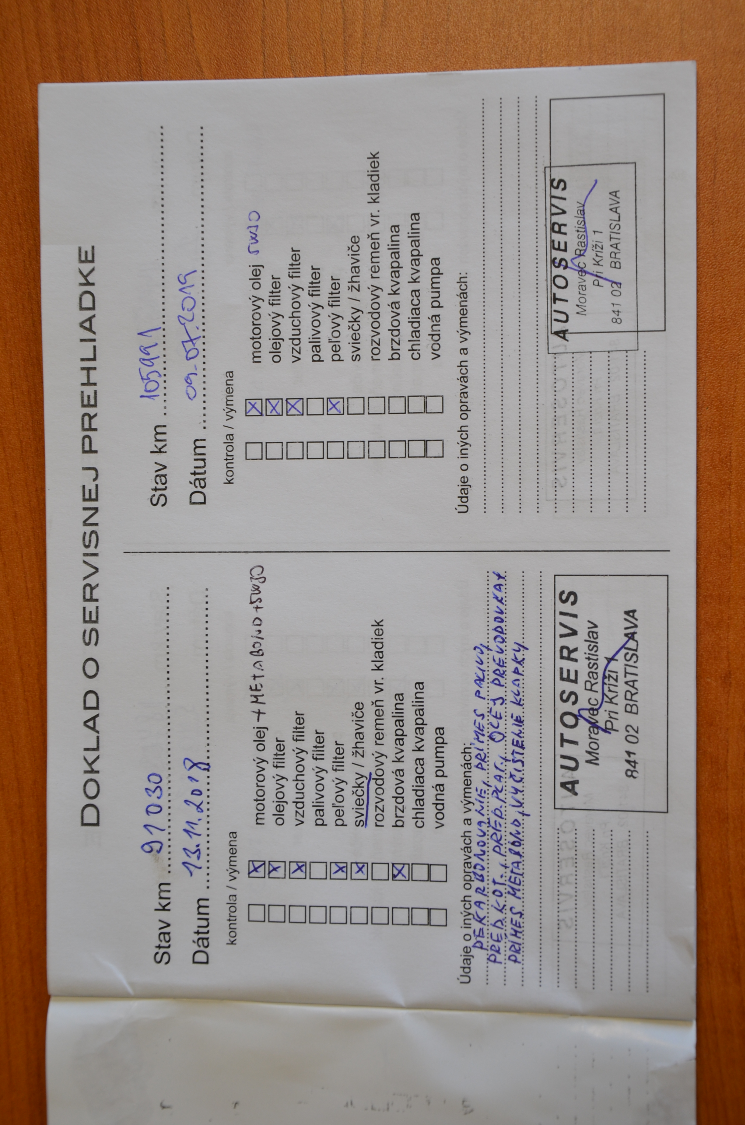 DOKLAD O SERVISNEJ PREHLIADKE
Stav km 91 030
Dátum 13.11.2018
kontrola / výmena
motorový olej + METABOND + 5W30
olejový filter
vzduchový filter
palivový filter
peľový filter
sviečky / žhaviče
rozvodový remeň vr. kladiek
brzdová kvapalina
chladiaca kvapalina
vodná pumpa
Údaje o iných opravách a výmenách:
DEKARBONOVANIE, PRÍMES PALIVO,
PRED.KOT., PRED.PLAT., OLEJ PREVODOVKA+
PRÍMES METABOND, VYČISTENIE KLAPKY
AUTOSERVIS
Moravec Rastislav
Pri Kríži 1
841 02 BRATISLAVA
Stav km 105991
Dátum 09.07.2019
kontrola / výmena
motorový olej 5W30
olejový filter
vzduchový filter
palivový filter
peľový filter
sviečky / žhaviče
rozvodový remeň vr. kladiek
brzdová kvapalina
chladiaca kvapalina
vodná pumpa
Údaje o iných opravách a výmenách:
AUTOSERVIS
Moravec Rastislav
Pri Kríži 1
841 02 BRATISLAVA